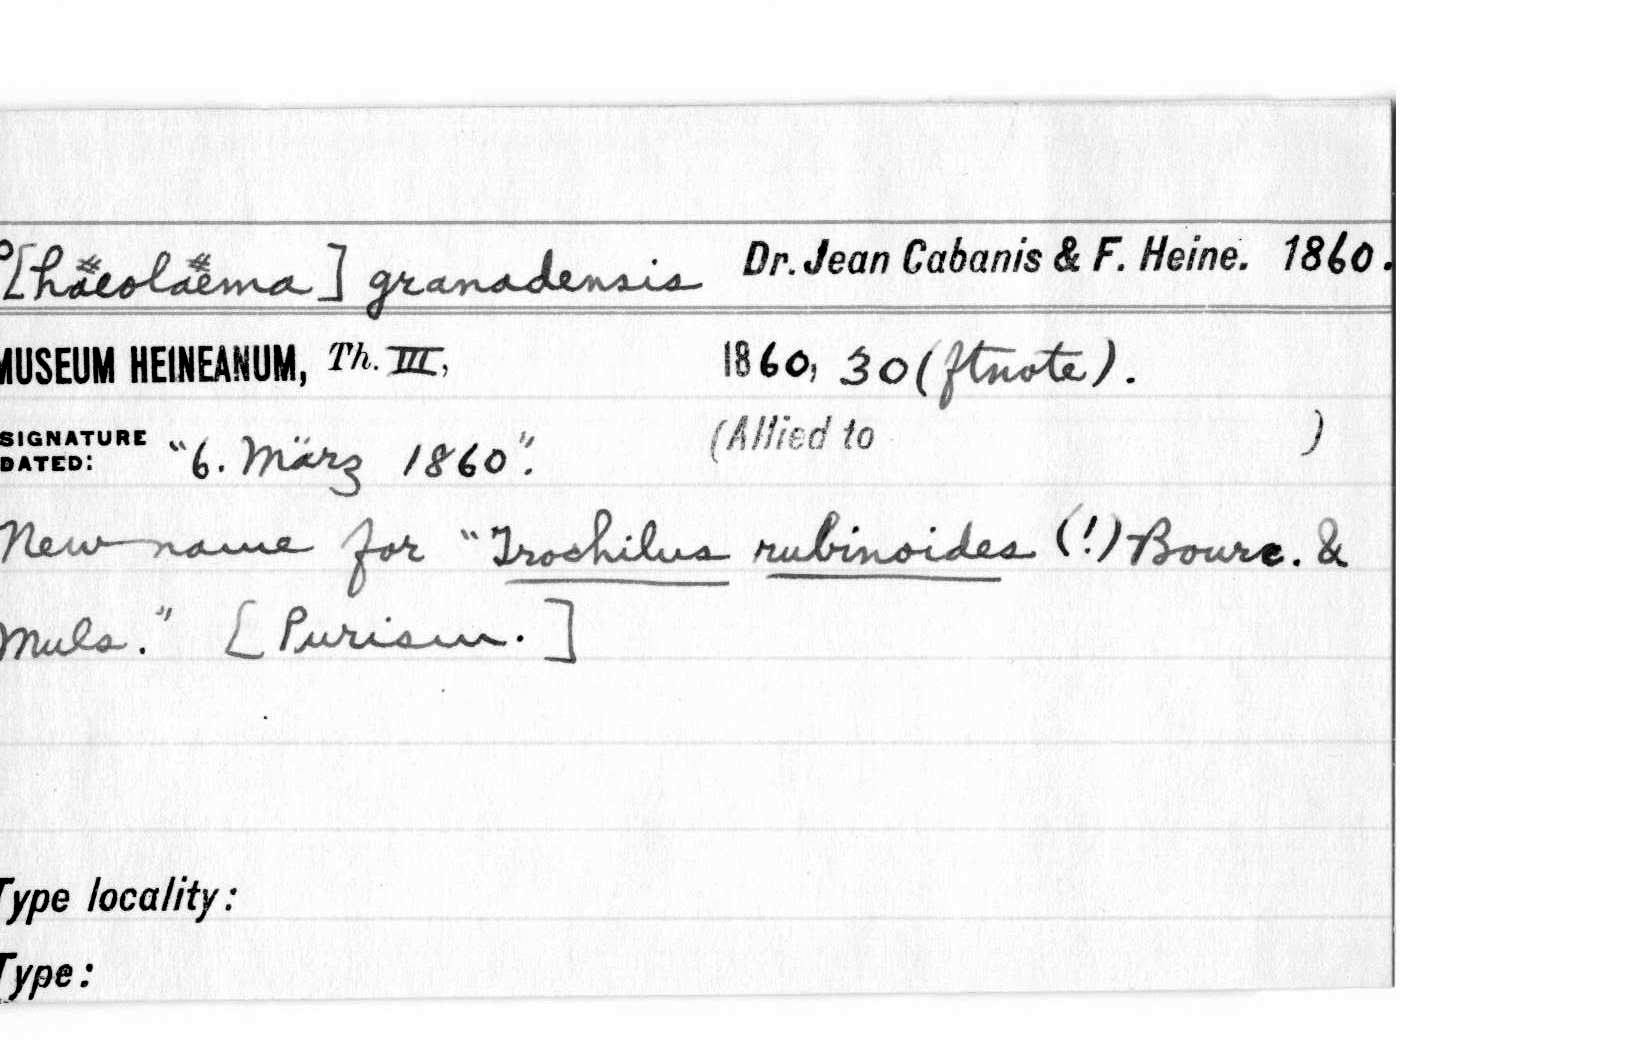 P[häeoläema] granadensis Dr. Jean Cabanis & F. Heine. 1860.
MUSEUM HEINEANUM, Th. III, 1860, 30 (ftnote).
SIGNATURE DATED: "6. März 1860". (Allied to )
New name for "Trochilus rubinoides (!) Bourc. &
Muls." [Purism.]
Type locality:
Type: